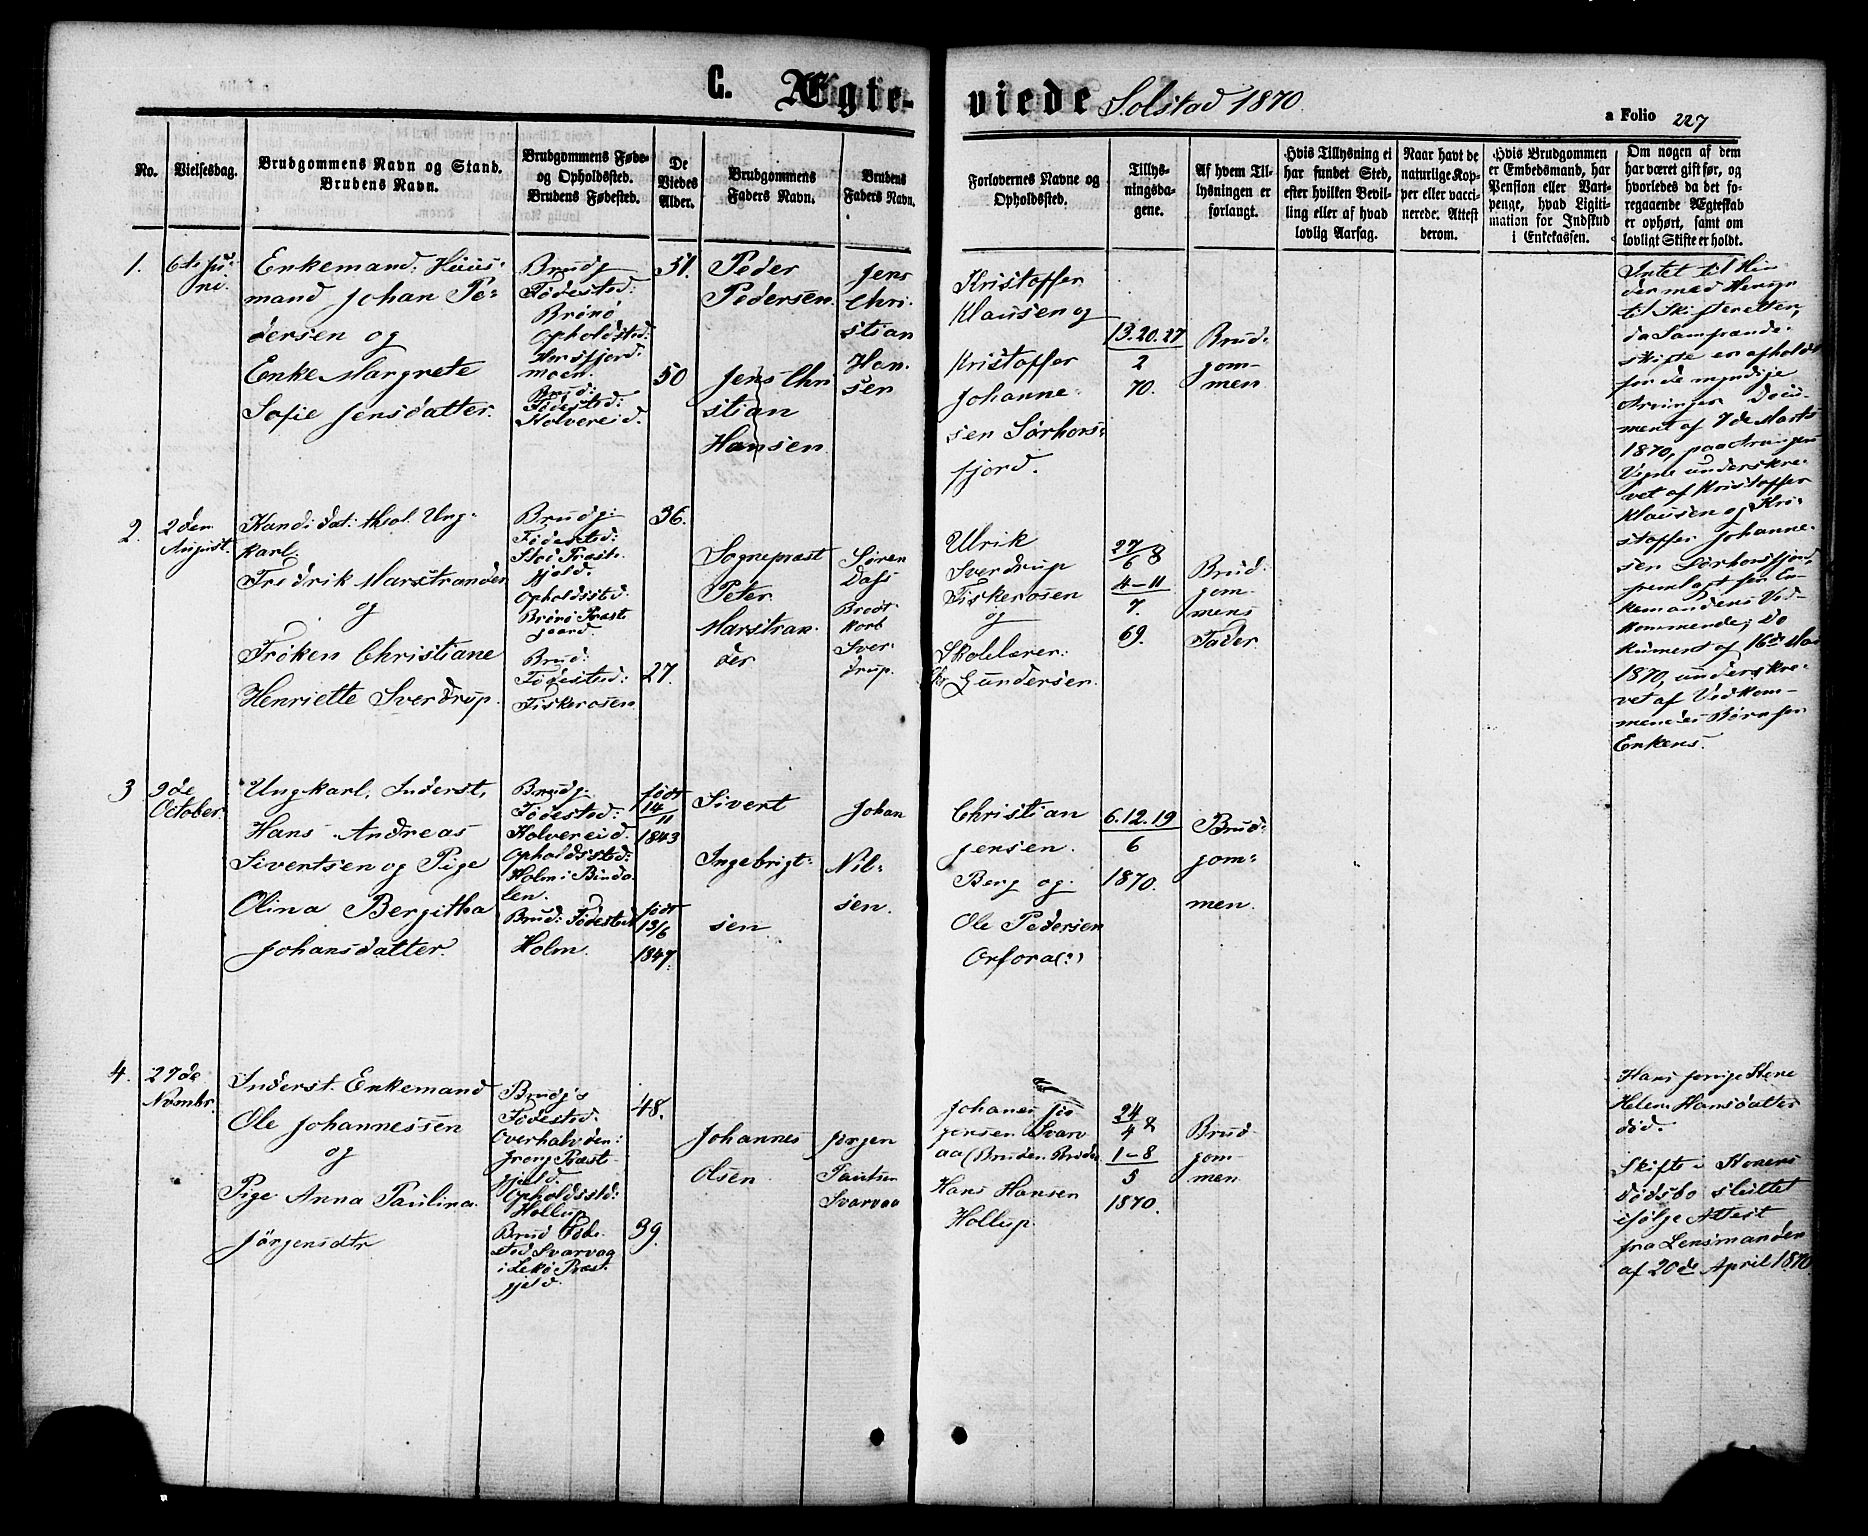 C. Ægte-
viede Solstad 1870.
a Folio 227
No.
Vielsesdag.
Brudgommens Navn og Stand.
Brudens Navn.
Brudgommens Føde-
og Opholdssted.
Brudens Fødested.
De
Viedes
Alder.
Brudgommens
Faders Navn.
Brudens
Faders Navn.
Forlovernes Navne og
Opholdssted.
Tillys-
ningsda-
gene.
Af hvem Til-
lysningen er
forlangt.
Hvis Tillysning ei
har fundet Sted,
efter hvilken Bevil-
ling eller af hvad
lovlig Aarsag.
Naar havt de
naturlige Kop-
per eller vacci-
nerede. Attest
derom.
Hvis Brudgommen
er Embedsmand, har
Pension eller Vart-
penge, hvad Ligiti-
mation for Indskud
i Enkekassen.
Om nogen af dem
har været gift før, og
hvorledes da det fo-
regaaende Ægteskab
er ophørt, samt om
lovligt Skifte er holdt.
1.
6te Ju-
ni.
Enkemand, Huus-
mand Johan Pe-
dersen og
Enke Margrete
Sofie Jensdatter.
Brudg
Fødested:
Brønø
Opholdsted:
Horsfjord-
moen.
Brud:
Fødested:
Kolvereid.
51.
50
Peder
Pedersen.
Jens Chri
stian
Hansen
Jens
Chri-
stian
Han-
sen
Kristoffer
Klausen og
Kristoffer
Johanne-
sen Sørhors-
fjord.
13.20.27
2
70.
Brud-
gom-
men
Intet til Hin-
der med Hensyn
til Skifteretten,
da Samfrænde-
skifte er afholdt
for de myndige
Arvinger Docu-
ment af 7de Marts
1870, paa Arvingers
Vegne underskre-
vet af Kristoffer
Klausen og Kri-
stoffer Johanne-
sen Sørhorsfjord,
fremlagt for En-
kemandens Ved-
kommende; Do
kument af 16de Mai
1870, underskre-
vet af Vedkom-
mendes Børn for
Enkens.
2.
2den
August.
Kandidat: theol. Ung-
karl.
Fredrik Marstrander
og
Frøken Christiane
Henriette Sverdrup.
Brudg:
Fødested:
Præste-
gjeld.
Opholdssted:
Brønø Præst
gaard.
Brud:
Fødested:
Fiskerosen
36.
27.
Sognepræst
Peter
Marstran-
der
Søren
Dass
Brodt
korb
Sver-
drup.
Ulrik
Sverdrup
Fiskerosen
og
Skolelærer
Gundersen.
27/6 &
4-11
7.
69.
Brud-
gom-
mens
Fader
3
9de
October.
Ungkarl, Inderst,
Hans Andreas
Sivertsen og Pige
Olina Bergitha
Johansdatter.
Brudg.
Fødested:
Kolvereid.
Opholdssted:
Holm i Binda-
len.
Brud: Fødested
Holm.
født
14
11
1843
født
13/6
1847.
Sivert
Ingebrigt-
sen
Johan
Nil-
sen.
Christian
Jensen.
Berg og
Ole Pedersen
Orfora(?)
6.12.19
6
1870.
Brud-
gom-
men.
4.
27de
Novembr.
Inderst. Enkemand
Ole Johannessen
og
Pige Anna Paulina
Jørgensdtr
Brudg's
Fødested.
Overhalvden:
Grong Præst
gjeld.
Opholdsstd:
Hollup
Brud Føde-
sted Svarvaa
i Lekø Præst
gjeld.
48.
39.
Johannes
Olsen
Jørgen
Paulsen
Svarvaa
Johaner Jør
gensen Svarv
aa (Bruden Broder
Hans Hansen
Hollup.
24/4 &
1-8
5
1870.
Brud-
gom-
men
Hans forrige Kone
Helena Hansdatter
død.
Skifte i Konens
Dødsbo sluttet
ifølge Attest
fra Lensmanden
af 20de April 1870